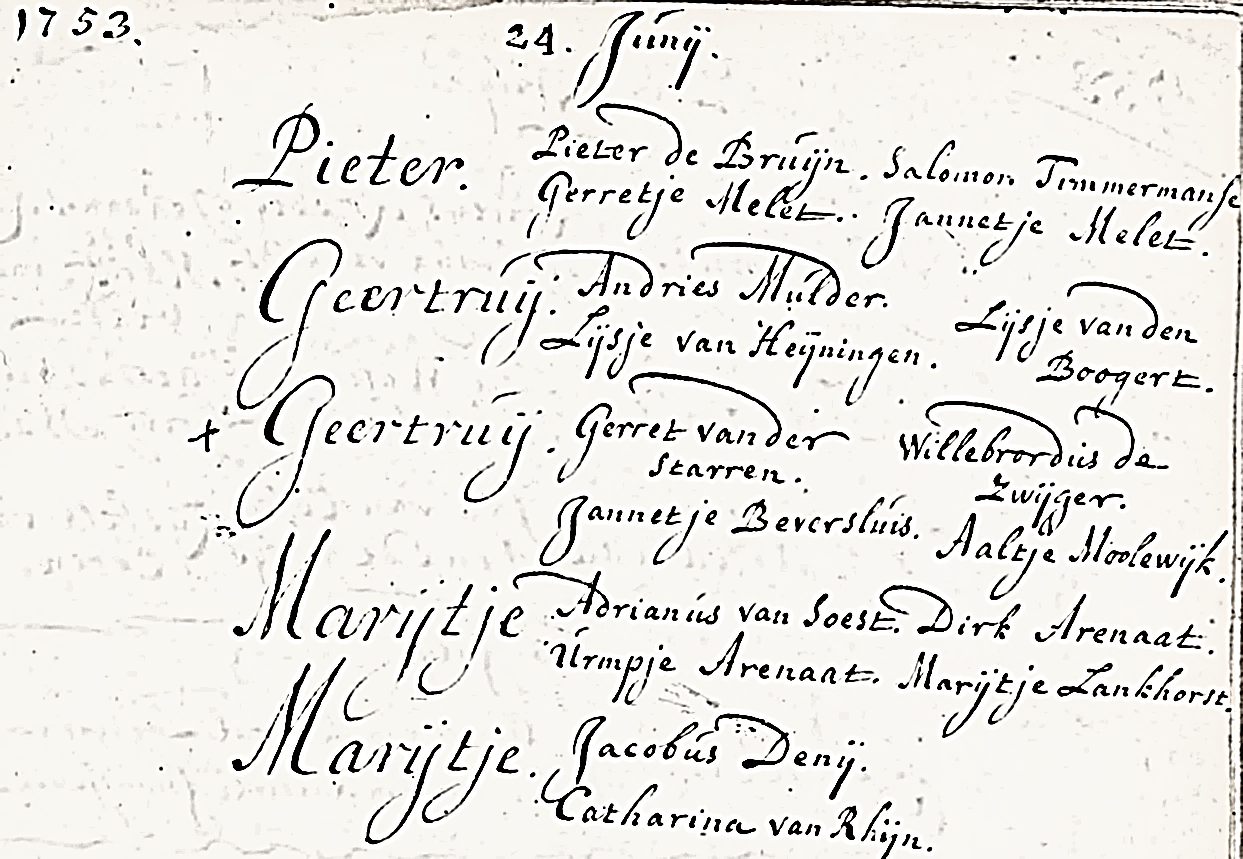 1753. 24. Junij.
Pieter. Pieter de Bruijn. Salomon Timmermanse
Gerretje Melet. Jannetje Melet.
Geertruij. Andries Mulder. Lijsje van den
Lijsje van Heijningen. Boogert.
+ Geertruij. Gerret van der Willebrordus de
Starren. Zwijger.
Jannetje Beversluis. Aaltje Moolewijk.
Marijtje Adrianus van Soest. Dirk Arenaat.
Urmpje Arenaat. Marijtje Lankhorst.
Marijtje. Jacobus Denij.
Catharina van Rhijn.